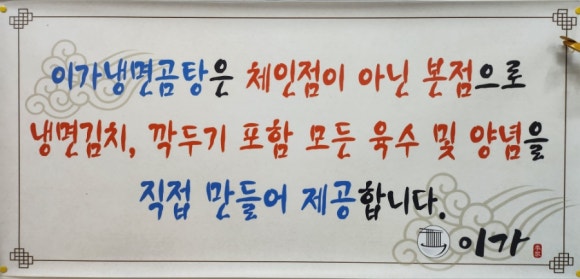 이가냉면곰탕은 체인점이 아닌 본점으로
냉면김치, 깍두기 포함 모든 육수 및 양념을
직접 만들어 제공합니다.
이가